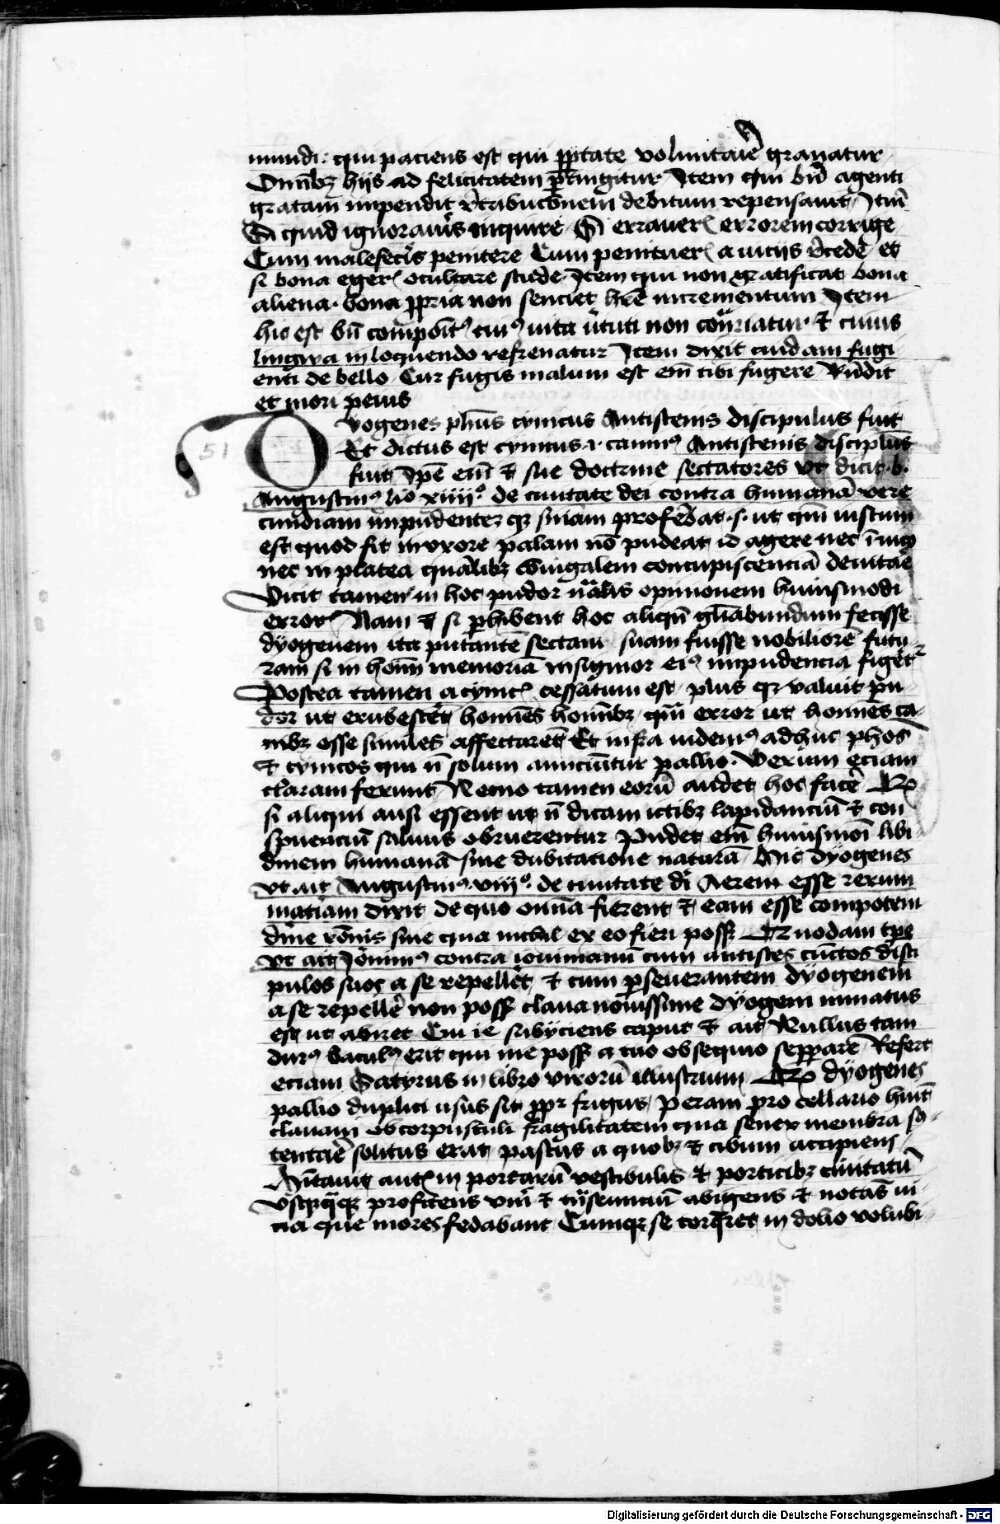 mundi · qui paciens est qui ꝓpͥetate voluntarie grauatur
Omībꝫ hijs ad felicitatem ꝑtingitur Item qui bn̄ agenti
gratiam impendit rͤtribucōnem debitum repensauit Itm̄
Si quid ignoraueris inquire · Si erraueris errorem corrige
Cum malefeceris penitere Cum penituerͥ a vicijs rͤcede et
si bona egerͥ ocultare stude Item qui non gratificat bona
aliena · bona ꝓpria non senciet hr̄e incrementum Item
hic est bn̄ compoītꝰ cuiꝰ vita v̓tuti non cont̓riatur · et cuius
lingwa in loquendo refrenatur Item dixit cuidam fugi
enti de bello Cur fugis malum est em̄ tibi fugere Rn̄dit
et mori peius
Dyogenes ph̄us cynicus Antistenis discipulus fuit
51
Et dictus est cynicus · Antistenis discipl̄us
fuit Ip̄e em̄ et sue doctrine sectatores vt dicit b.
Augustinꝰ li̓o xiiij° de ciuitate dei contra humanā vere
cundiam impudenter suam profe̓bat · s · ut qm̄ iustum
est quod fit in vxore palam nō pudeat id agere nec ī vico
nec in platea qualibꝫ coniugalem concupiscenciā deuitare
Vicit tamen in hoc pudor nāalis opinionem huiusmodi
errorͥ Nam et si ꝑhibent hoc aliqn̄ gl̄iabundum fecisse
dyogenem ita putantē sectam suam fuisse nobiliorē futu
ram si in hoīm memoriā insignior eiꝰ impudencia figeret̄
Postea tamen a cynicͥ cessatum est · plus qꝫ valuit pu
dor ut erubescerēt homīes homībꝫ qm̄ error ut homīes ca
nibꝫ esse similes affectarēt Et infra videmꝰ adhuc ph̄os
et cynicos qui n̄ solum amiciūtur pallio · Verum eciam
clauam ferunt Nemo tamen eorū audet hoc facere
si aliqui ausi essent ut n̄ dicam ictibꝫ lapidanciū et con
spuenciū saliuis obruerentur Pudet em̄ huiusmoī libi
dinem humanā sine dubitacione naturā · Hic dyogenes
vt ait Augustinꝰ viij° de ciuitate dī Aerem esse rerum
matͥiam dixit de quo om̄ia fierent et eam esse compotem
diuīe rōnis sine qua nichil ex eo fieri possꝫ Quodam tꝑe
vt ait Jeronimꝰ contra iouinianū cum antistes cūctos disci
pulos suos a se repellēt · et cum ꝑseuerantem dyogenem
a se repellere non possꝫ claua nouissime dyogeni minatus
est ut abiret Cui ie sibyciens caput et ait Nullus tam
durꝰ baculꝰ erit qui me possꝫ a tuo obsequio sepparare · Refert
eciam Satyrus in libro virorū illustrium dyogenes
pallio duplici usus sit ꝓpͥ frigus · Peram pro cellario huit̄
clauam ob corpusculi fragilitatem qua senex membra su
tentare solitus erat · pastus a quobꝫ et cibum accipiens
Hītauit autͥ in portarū vestibulis et porticibꝫ ciuitatū
Vsqꝫquaqꝫ proficiens vnīuersi et trāseuncium abigens et notās vi
cia que mores fedabant Cumqꝫ se torqueret in dolio volubi